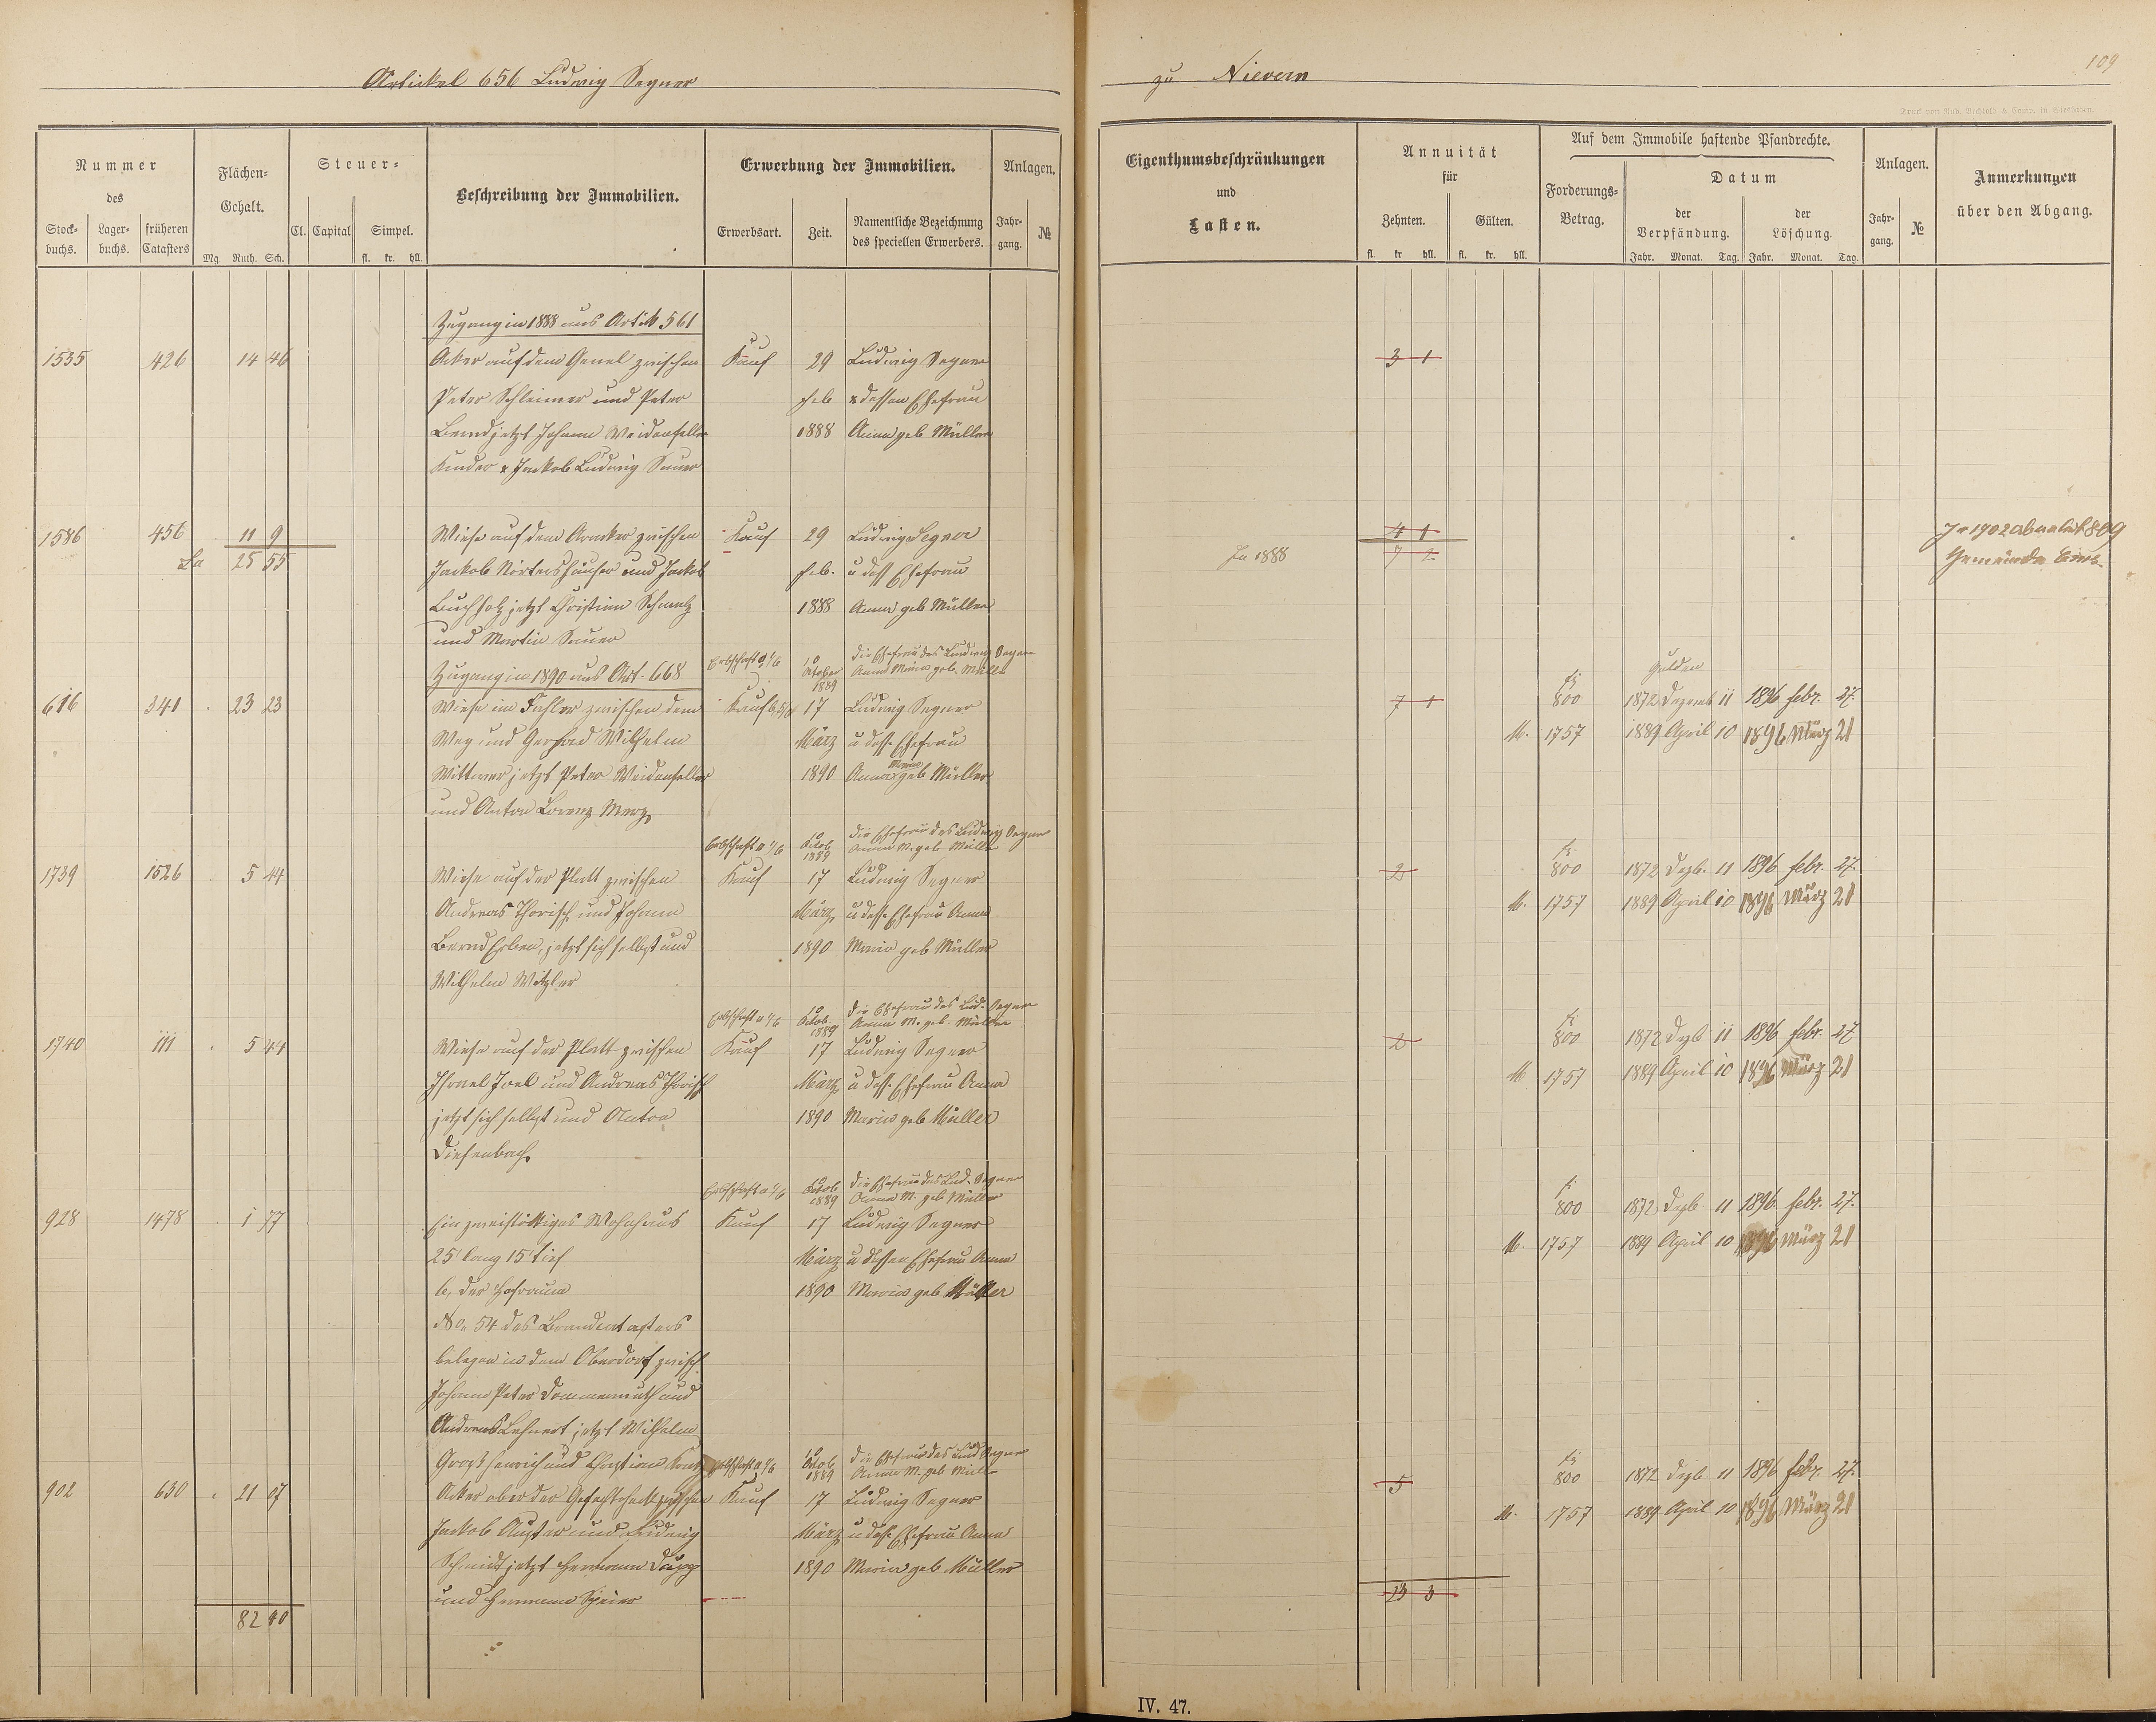 Artickel 656 Ludwig Segner
zu Nievern
109
Nummer
des
Stock-
buchs.
Lager-
buchs.
früheren
Catasters
Flächen-
Gehalt.
Mg. Ruth. Sch.
Steuer-
Cl. Capital Simpel.
fl. kr. hll.
Beschreibung der Immobilien.
Erwerbung der Immobilien.
Erwerbsart. Zeit.
Namentliche Bezeichnung
des speciellen Erwerbers.
Anlagen.
Jahr-
gang.
№
Eigenthumsbeschränkungen
und
Lasten.
Annuität
für
Zehnten. Gülten.
fl. kr hll. fl. kr. hll.
Auf dem Immobile haftende Pfandrechte.
Forderungs-
Betrag.
Datum
der
Verpfändung.
der
Löschung.
Jahr. Monat. Tag. Jahr. Monat. Tag.
Anlagen.
Jahr-
gang.
№
Anmerkungen
über den Abgang.
Zugang in 1888 aus Artik 561
1535 426 14 46 Acker auf dem Genel zwischen Kauf 29 Ludwig Segner 3 1
Peter Schleimer und Peter feb & dessen Ehefrau
Bernd jetzt Johann Weidenfeller 1888 Anna geb Müller
Kinder & Jackob Ludwig Sauer
1586 456 11 9 Wiese auf dem zwischen Kauf 29 Ludwig Segner 4 1 In 1902
La 25 55 Jackob Nörtershäuser und Jackob feb. u dess Ehefrau In 1888 7 2 Gemeinde Ems
Buchholz jetzt Christian Schmelz 1888 Anna geb Müller
und Martin Sauer
Zugang in 1890 aus Art. 668 Erbschaft a 1/6 10 October 1889 die Ehefrau des Ludwig Segner Anna Maria geb. Müller
Gulden
616 341 23 23 Wiese im Fahler zwischen dem Kauf 17 Ludwig Segner 7 1 fl 800 1872 Dezemb 11 1896 febr. 27.
Weg und Gerhard Wilhelm März u dess. Ehefrau M. 1757 1889 April 10 1896 März 21
Wittwer jetzt Peter Weidenfeller 1890 Anna Maria geb Müller
und Anton Lorenz Merz
Erbschaft a 1/6 10 Octob 1889 die Ehefrau des Ludwig Segner Anna M. geb Müller
1739 1526 5 44 Wiese auf der Platt zwischen Kauf 17 Ludwig Segner 2 fl. 800 1872 Dezb. 11 1896 febr. 27.
Andreas Thorisch und Johann März u dess Ehefrau Anna M. 1757 1889 April 10 1896 März 21
Bernd Erben, jetzt sich selbst und 1890 Maria geb Müller
Wilhelm Witzler
Erbschaft a 1/6 10 Octob. 1889 die Ehefrau des Lud. Segner Anna M. geb. Müller
1740 1111 5 44 Wiese auf der Platt zwischen Kauf 17 Ludwig Segner 2 fl 800 1872 Dezb 11 1896 febr. 27
Israel Joel und Andreas Thorisch März u dess. Ehefrau Anna M 1757 1889 April 10 1896 März 21
jetzt sich selbst und Anton 1890 Maria geb Müller
Diefenbach
Erbschaft a 1/6 10 Octob 1889 die Ehefrau des Lud. Segner Anna M. geb Müller
928 1478 1 77 Ein zweistöckiges Wohnhaus Kauf 17 Ludwig Segner fl 800 1872 Dezb 11 1896. febr. 27.
25' lang 15' tief März u dessen Ehefrau Anna M. 1757 1889 April 10 1896 März 21
b, der Hofraum 1890 Maria geb Müller
No. 54 des Brandcatasters
belegen in dem Oberdorf zwisch
Johann Peter Dommermuth und
Andreas Lehnert jetzt Wilhelm
Henrich und Christian Erbschaft a 1/6 10 Octob 1889 die Ehefrau des Lud Segner Anna M. geb Müller
902 630 21 07 Acker ober der zwischen Kauf 17 Ludwig Segner 5 fl 800 1872 Dezb 11 1896 febr. 27.
Jackob und Ludwig März u dess. Ehefrau Anna M. 1757 1889 April 10 1896 März 21
Schmidt jetzt Hermann 1890 Maria geb Müller
und Hermann Speier 23 3
82 40
IV. 47.